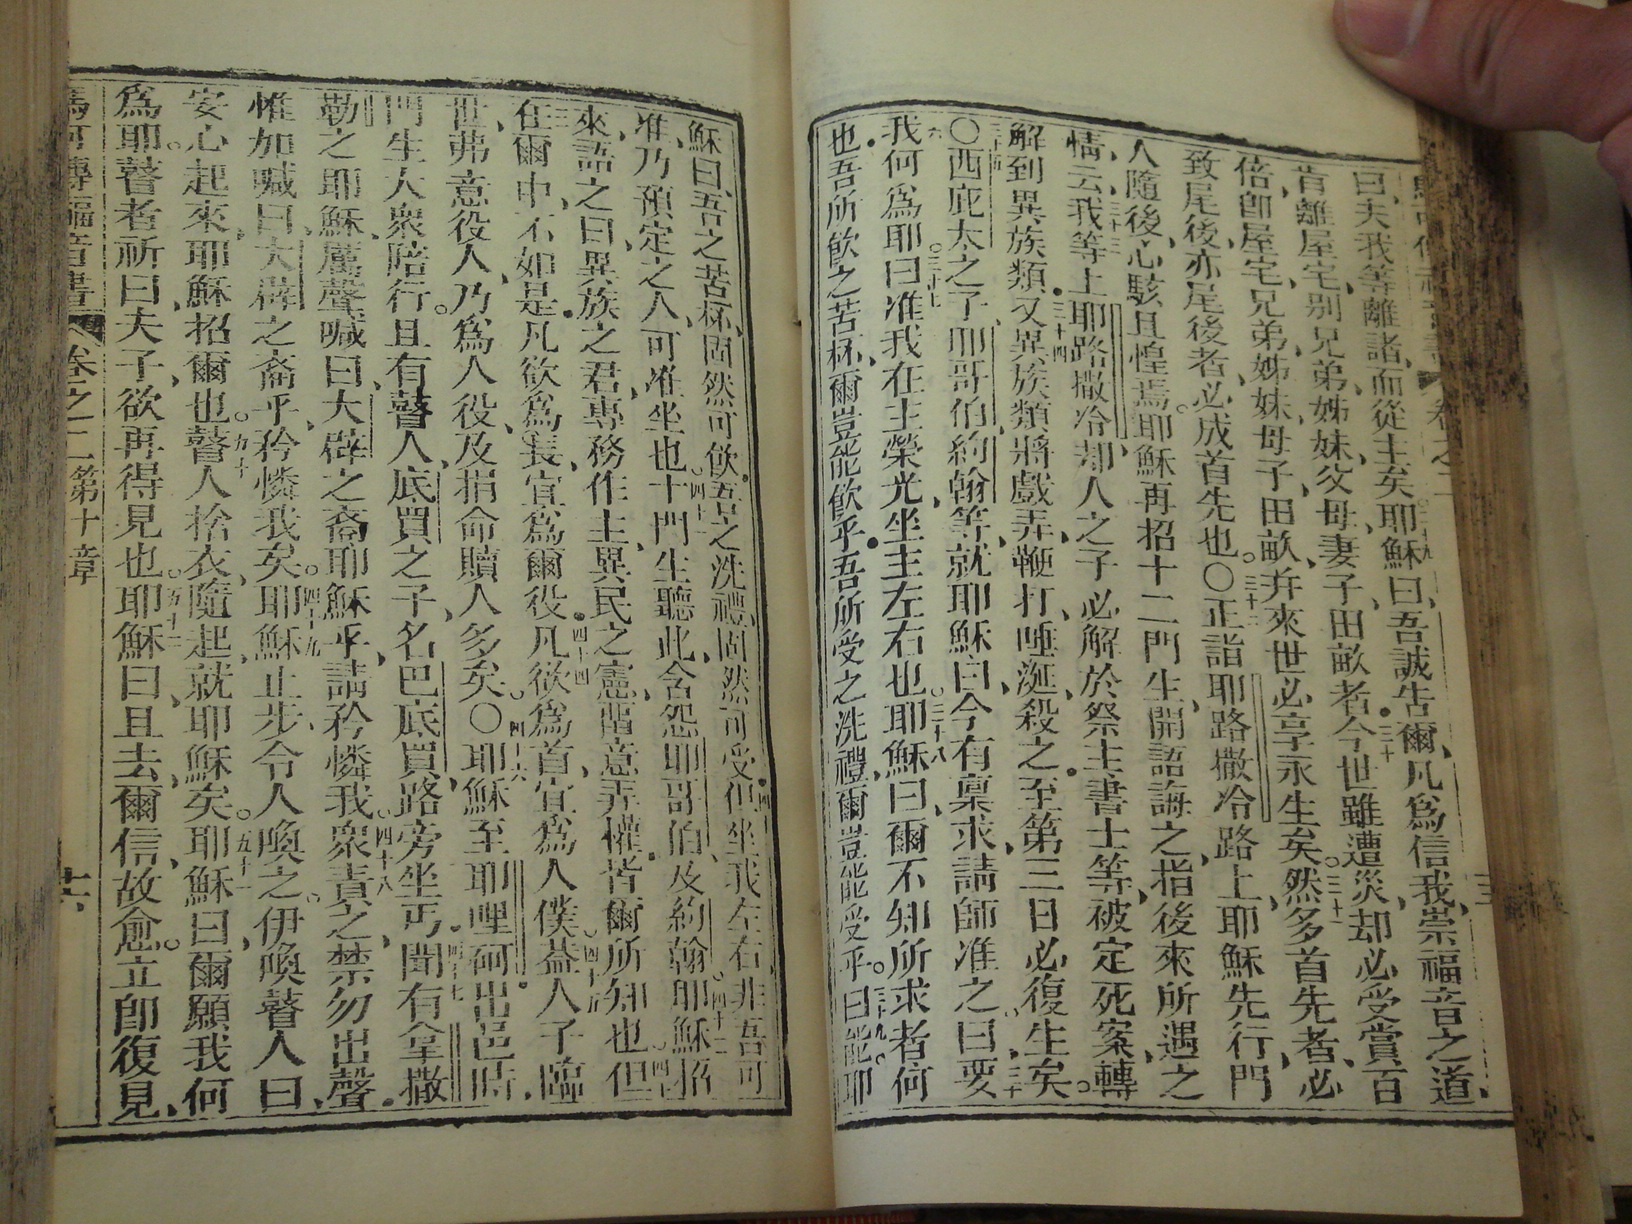 曰夫我等離諸而從主矣耶穌曰吾誠告爾凡爲信我崇福音之道
肯離屋宅别兄弟姊妹父母妻子田畝者三十今世雖遭災却必受賞百
倍卽屋宅兄弟姊妹母子田畝幷來世必享永生矣三十一然多首先者必
致尾後亦尾後者必成首先也〇三十二正詣耶路撒冷路上耶穌先行門
人隨後心駭且惶焉耶穌再招十二門生開語誨之指後來所遇之
情三十三云我等上耶路撒冷却人之子必解於祭主書士等被定死案轉
解到異族類三十四又異族類將戲弄鞭打唾涎殺之至第三日必復生矣
〇三十五西庇太之子耶哥伯約翰等就耶穌曰今有稟求請師准之曰要
三十六我何爲耶三十七曰准我在主榮光坐主左右也三十八耶穌曰爾不知所求者何
也吾所飮之苦杯爾豈能飮乎吾所受之洗禮爾豈能受乎三十九曰能耶
穌曰吾之苦杯固然可飮四十吾之洗禮固然可受但坐我左右非吾可
准乃預定之人可准坐也四十一十門生聽此含怨耶哥伯及約翰四十二耶穌招
來語之曰異族之君專務作主異民之憲階意弄權皆爾所知也四十三但
在爾中不如是凡欲爲長宜爲爾役四十四凡欲爲首宜爲人僕四十五蓋人子臨
世弗意役人乃爲人役及捐命贖人多矣〇四十六耶穌至耶哩𠵽出邑時
門生大衆陪行且有瞽人底買之子名巴底買路旁坐丐四十七聞有拿撒
勒之耶穌厲聲喊曰大辟之裔耶穌乎請矜憐我四十八衆責之禁勿出聲
惟加喊曰大辟之裔乎矜憐我矣四十九耶穌止步令人喚之伊喚瞽人曰
安心起來耶穌招爾也五十瞽人捨衣隨起就耶穌矣五十一耶穌曰爾願我何
爲耶瞽者祈曰夫子欲再得見也五十二耶穌曰且去爾信故愈立卽復見
馬可傳福音書 卷之二 第十章 十六